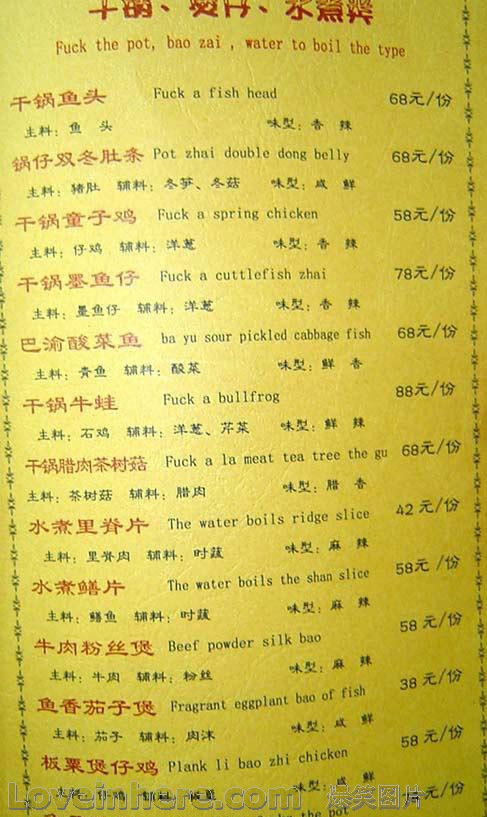 干锅、煲仔、水煮类
Fuck the pot, bao zai , water to boil the type
干锅鱼头 Fuck a fish head 68元/份
主料：鱼 头 味型：香 辣
锅仔双冬肚条 Pot zhai double dong belly 68元/份
主料：猪肚 辅料：冬笋、冬菇 味型：咸 鲜
干锅童子鸡 Fuck a spring chicken 58元/份
主料：仔鸡 辅料：洋葱 味型：香 辣
干锅墨鱼仔 Fuck a cuttlefish zhai 78元/份
主料：墨鱼仔 辅料：洋葱 味型：香 辣
巴渝酸菜鱼 ba yu sour pickled cabbage fish 68元/份
主料：青鱼 辅料：酸菜 味型：鲜 香
干锅牛蛙 Fuck a bullfrog 88元/份
主料：石鸡 辅料：洋葱、芹菜 味型：鲜 辣
干锅腊肉茶树菇 Fuck a la meat tea tree the gu 68元/份
主料：茶树菇 辅料：腊肉 味型：腊 香
水煮里脊片 The water boils ridge slice 42元/份
主料：里脊肉 辅料：时蔬 味型：麻 辣
水煮鳝片 The water boils the shan slice 58元/份
主料：鳝鱼 辅料：时蔬 味型：麻 辣
牛肉粉丝煲 Beef powder silk bao 58元/份
主料：牛肉 辅料：粉丝 味型：麻 辣
鱼香茄子煲 Fragrant eggplant bao of fish 38元/份
主料：茄子 辅料：肉沫 味型：咸 鲜
板栗煲仔鸡 Plank li bao zhi chicken 58元/份
主料：仔鸡 辅料：板栗 味型：咸 鲜
Loveinhere.com 爆笑图片
the pot 元/份